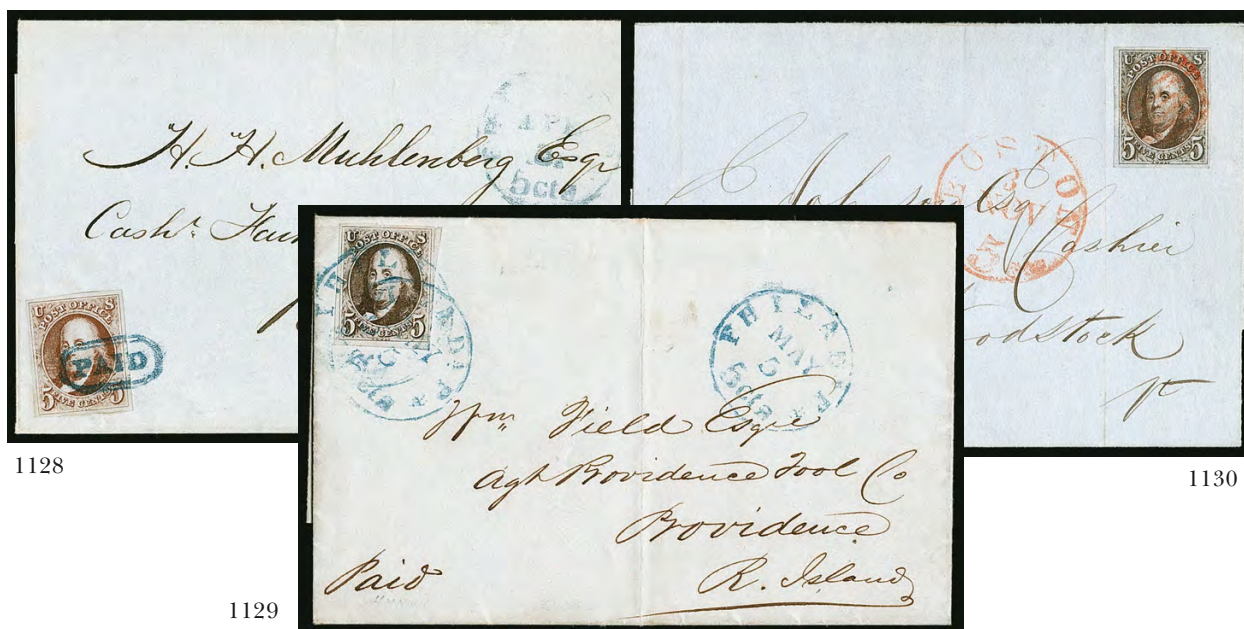 APR
5cts
H. H. Muhlenberg Esqr
Cashr.
U S
POST OFFICE
5 5
FIVE CENTS
PAID
1128
U S
POST OFFICE
5 5
FIVE CENTS
PHILADA PA
PHILADA PA
MAY
5
5cts
Wm Field Esqre
Agt Providence Tool Co
Providence
R. Island
Paid
1129
U S
POST OFFICE
5 5
FIVE CENTS
BOSTON
NOV
5
Esq
Cashier
1130